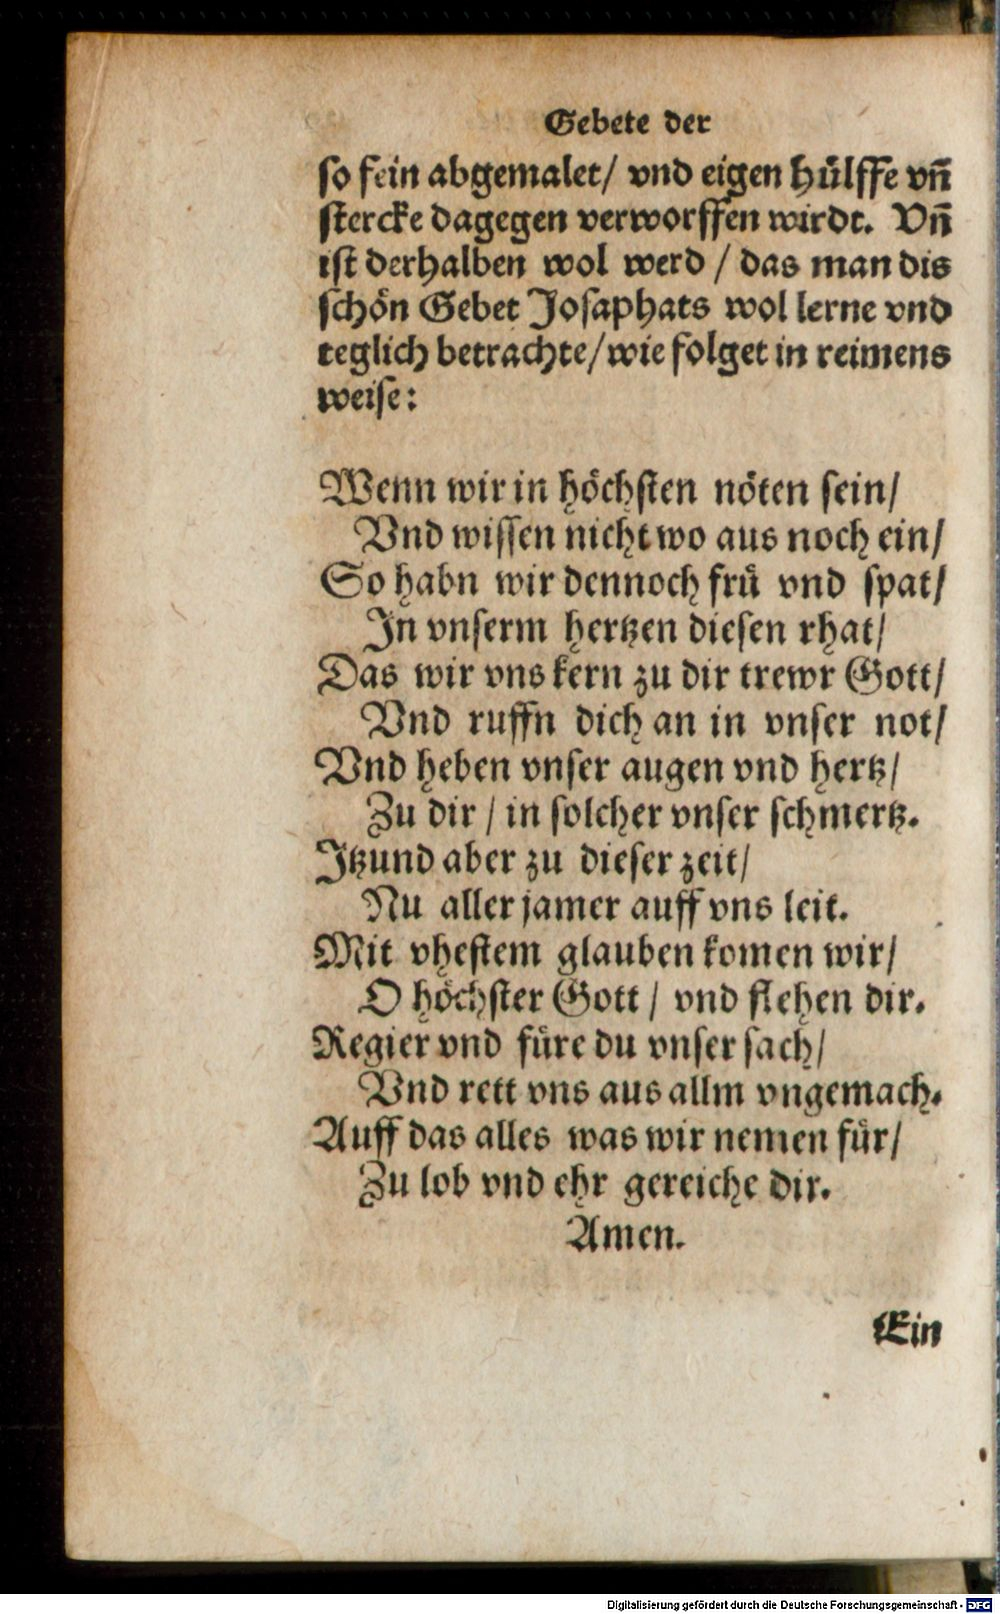 Gebete der
so fein abgemalet/ vnd eigen hülffe vñ
stercke dagegen verworffen wirdt. Vñ
ist derhalben wol werd / das man dis
schön Gebet Josaphats wol lerne vnd
teglich betrachte/ wie folget in reimens
weise:
Wenn wir in höchsten nöten sein/
Vnd wissen nicht wo aus noch ein/
So habn wir dennoch frü vnd spat/
In vnserm hertzen diesen rhat/
Das wir vns kern zu dir trewr Gott/
Vnd ruffn dich an in vnser not/
Vnd heben vnser augen vnd hertz/
Zu dir / in solcher vnser schmertz.
Itzund aber zu dieser zeit/
Nu aller jamer auff vns leit.
Mit vhestem glauben komen wir/
O höchster Gott / vnd flehen dir.
Regier vnd füre du vnser sach/
Vnd rett vns aus allm vngemach.
Auff das alles was wir nemen für/
Zu lob vnd ehr gereiche dir.
Amen.
Ein
Digitalisierung gefördert durch die Deutsche Forschungsgemeinschaft - DFG